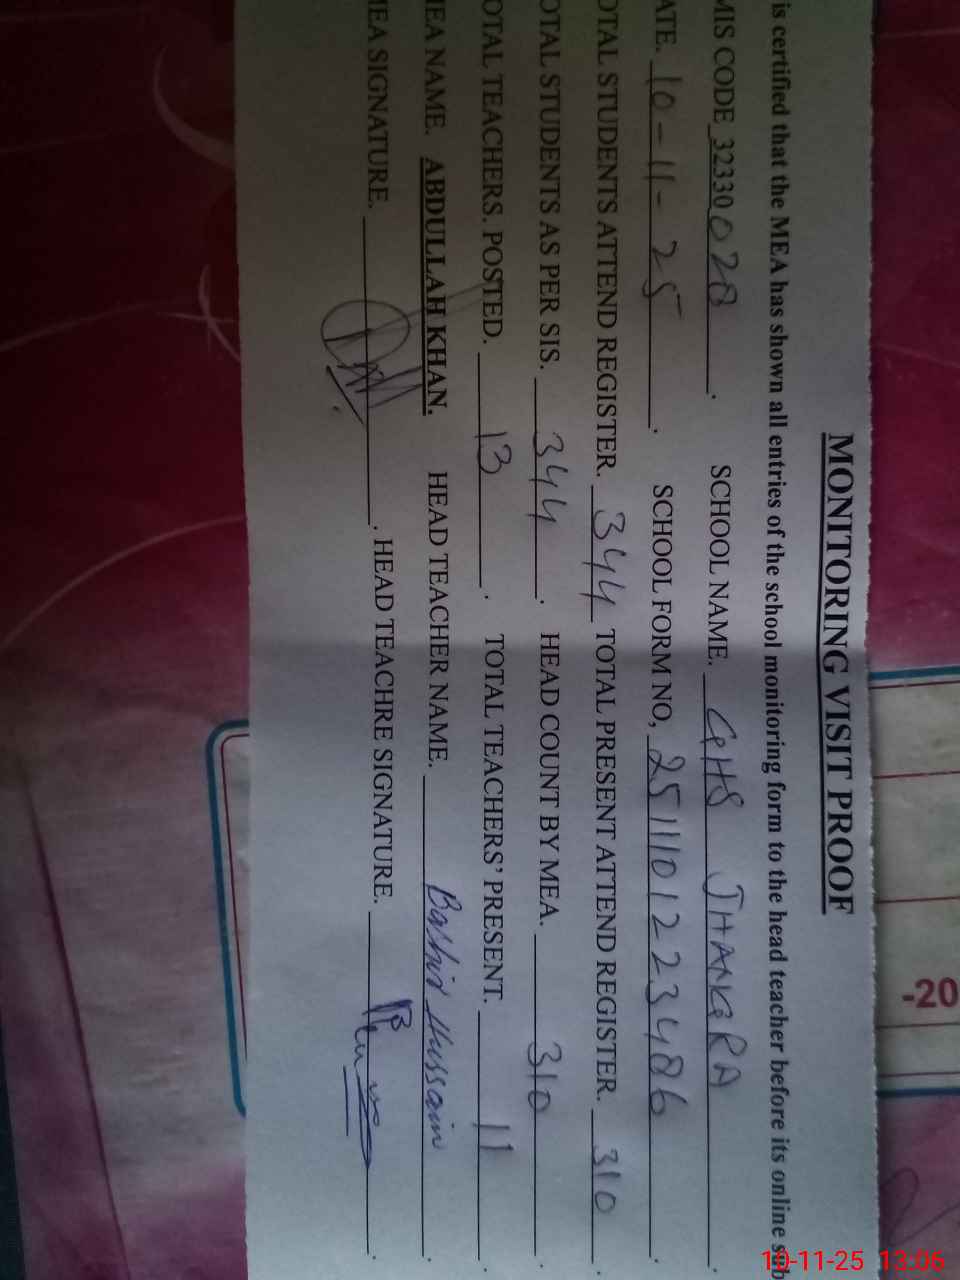 MONITORING VISIT PROOF
is certified that the MEA has shown all entries of the school monitoring form to the head teacher before its online sub
MIS CODE 32330020. SCHOOL NAME. GHS JHANGRA
ATE. 10-11-25. SCHOOL FORM NO, 251101223486.
OTAL STUDENTS ATTEND REGISTER. 344 TOTAL PRESENT ATTEND REGISTER. 310.
OTAL STUDENTS AS PER SIS. 344. HEAD COUNT BY MEA. 310.
OTAL TEACHERS. POSTED. 13. TOTAL TEACHERS' PRESENT. 11.
EA NAME. ABDULLAH KHAN. HEAD TEACHER NAME. Bashir Hussain.
EA SIGNATURE. . HEAD TEACHRE SIGNATURE. .
-20
10-11-25 13:06